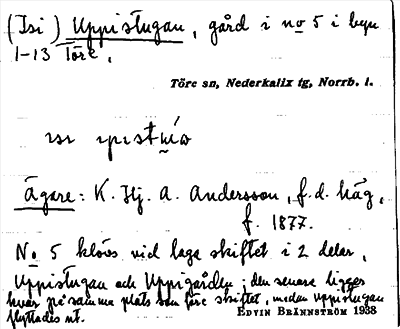 (Isi) Uppistugan, gård i no 5 i byn
1-13 Töre.
Töre sn, Nederkalix tg, Norrb. l.
Ägare: K. Hj. A. Andersson, f.d. häg,
f. 1877.
No 5 klövs vid laga skiftet i 2 delar,
Uppistugan och Uppigården; den senare ligger
kvar på samma plats som före skiftet, medan Uppistugan
flyttades ut.
EDVIN BRÄNNSTRÖM 1938